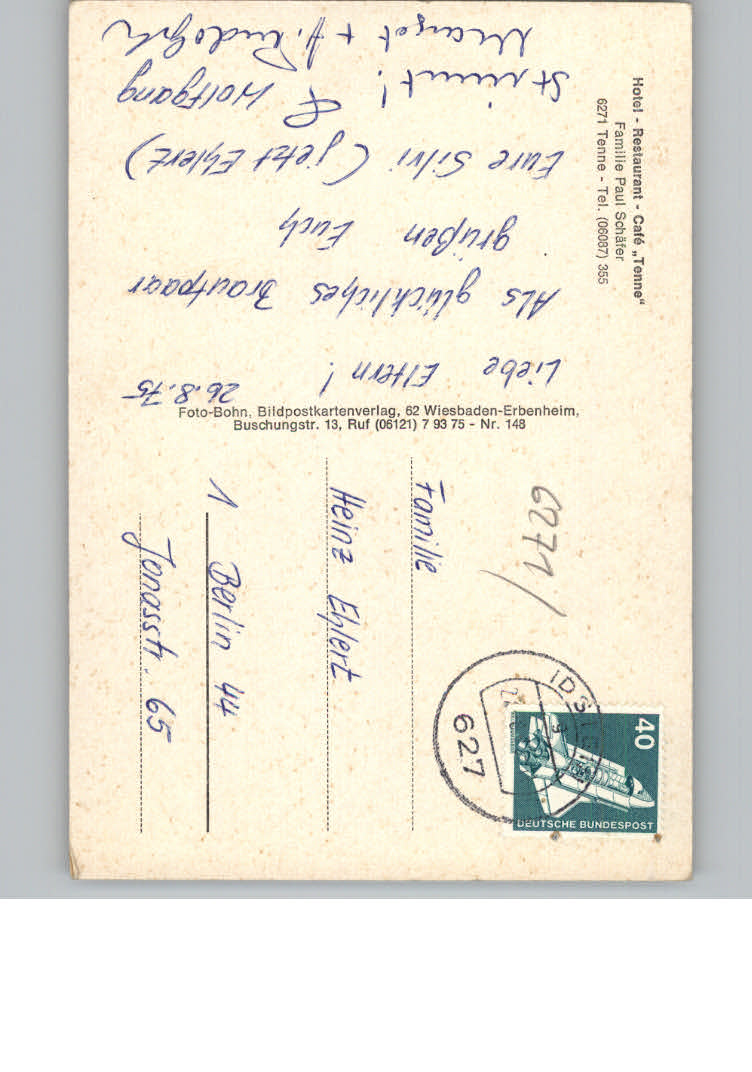 Hotel - Restaurant - Café „Tenne“
Familie Paul Schäfer
6271 Tenne - Tel. (06087) 355
26.8.75
Liebe Eltern!
Als glückliches Brautpaar
grüßen Euch
Eure Silvi (jetzt Ehlert)
& Wolfgang
Stimmt!
Margot + H. Rudolph
Foto-Bohn, Bildpostkartenverlag, 62 Wiesbaden-Erbenheim,
Buschungstr. 13, Ruf (06121) 7 93 75 - Nr. 148
6271/
40
DEUTSCHE BUNDESPOST
627
Familie
Heinz Ehlert
1 Berlin 44
Jonasstr. 65